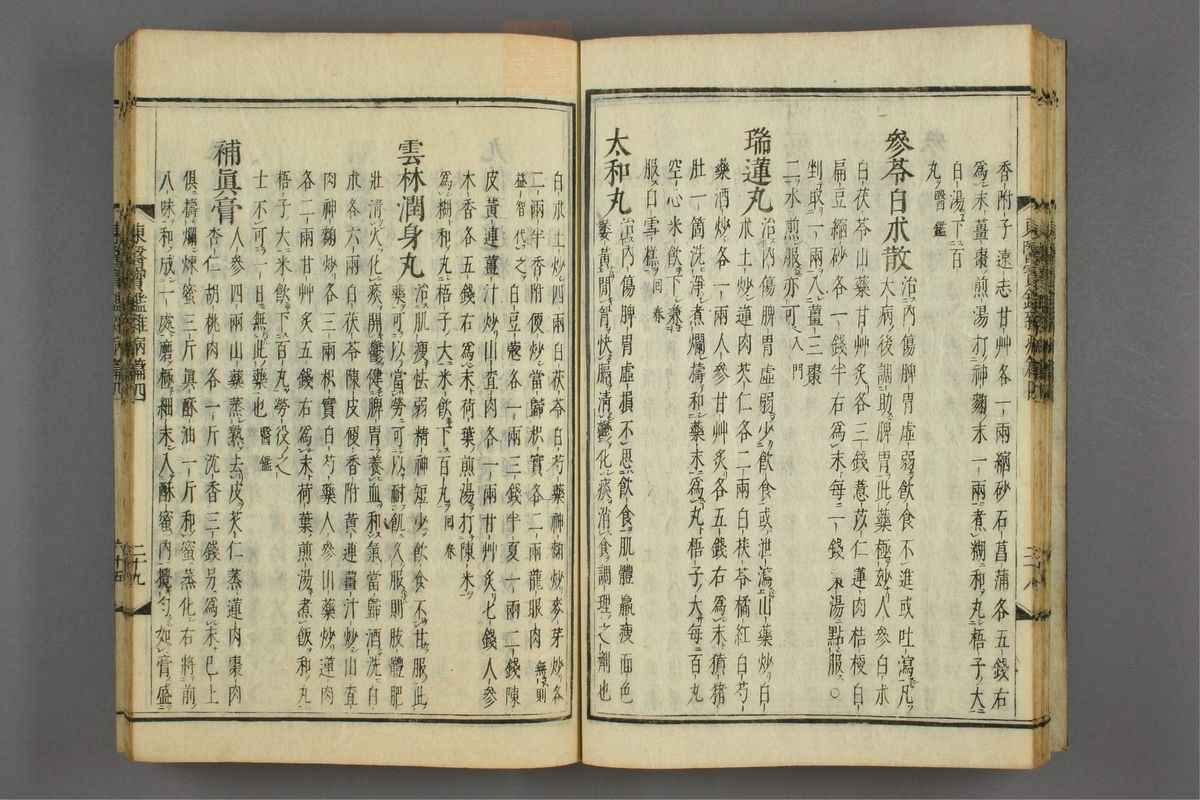 香附子遠志甘艸各一兩縮砂石菖蒲各五錢右
爲末薑棗煎湯打神麴末一兩煮糊和丸梧子大
白湯下百
丸醫鑑
參苓白朮散治內傷脾胃虛弱飮食不進或吐瀉凡
大病後調助脾胃此藥極妙人參白朮
白茯苓山藥甘艸炙各三錢薏苡仁蓮肉桔梗白
扁豆縮砂各一錢半右爲末每二錢棗湯點服○
剉取一兩入薑三棗
二水煎服亦可入門
瑞蓮丸治內傷脾胃虛弱少飮食或泄瀉山藥炒白
朮土炒蓮肉芡仁各二兩白茯苓橘紅白芍
藥酒炒各一兩人參甘艸炙各五錢右爲末㹠猪
肚一箇洗淨煮爛擣和藥末爲丸梧子大每百丸
空心米飮下兼
服白雪糕回春
太和丸治內傷脾胃虛損不思飮食肌體羸瘦面色
萎黃開胷快膈清鬱化痰消食調理之劑也
白朮土炒四兩白茯苓白芍藥神麴炒麥芽炒各
二兩半香附便炒當歸枳實各二兩龍眼肉無則
益智代之白豆蔲各一兩三錢半夏一兩二錢陳
皮黃連薑汁炒山査肉各一兩甘艸炙七錢人參
木香各五錢右爲末荷葉煎湯打陳米
爲糊和丸梧子大米飮下百丸回春
雲林潤身丸治肌瘦怯弱精神短少飮食不甘服此
藥可以當勞可以耐飢久服則肢體肥
壯清火化痰開鬱健脾胃養血和氣當歸酒洗白
朮各六兩白茯苓陳皮便香附黃連薑汁炒山査
肉神麴炒各三兩枳實白芍藥人參山藥炒蓮肉
各二兩甘艸炙五錢右爲末荷葉煎湯煮飯和丸
梧子大米飮下百丸勞役之
士不可一日無此藥也醫鑑
補眞膏人參四兩山藥蒸熟去皮芡仁蒸蓮肉棗肉
杏仁胡桃肉各一斤沈香三錢另爲末已上
俱擣爛煉蜜三斤眞酥油一斤和蜜蒸化右將前
八味和成一處磨極細末入酥蜜內攪勻如膏盛
東醫寶鑑雜病篇四
二十九